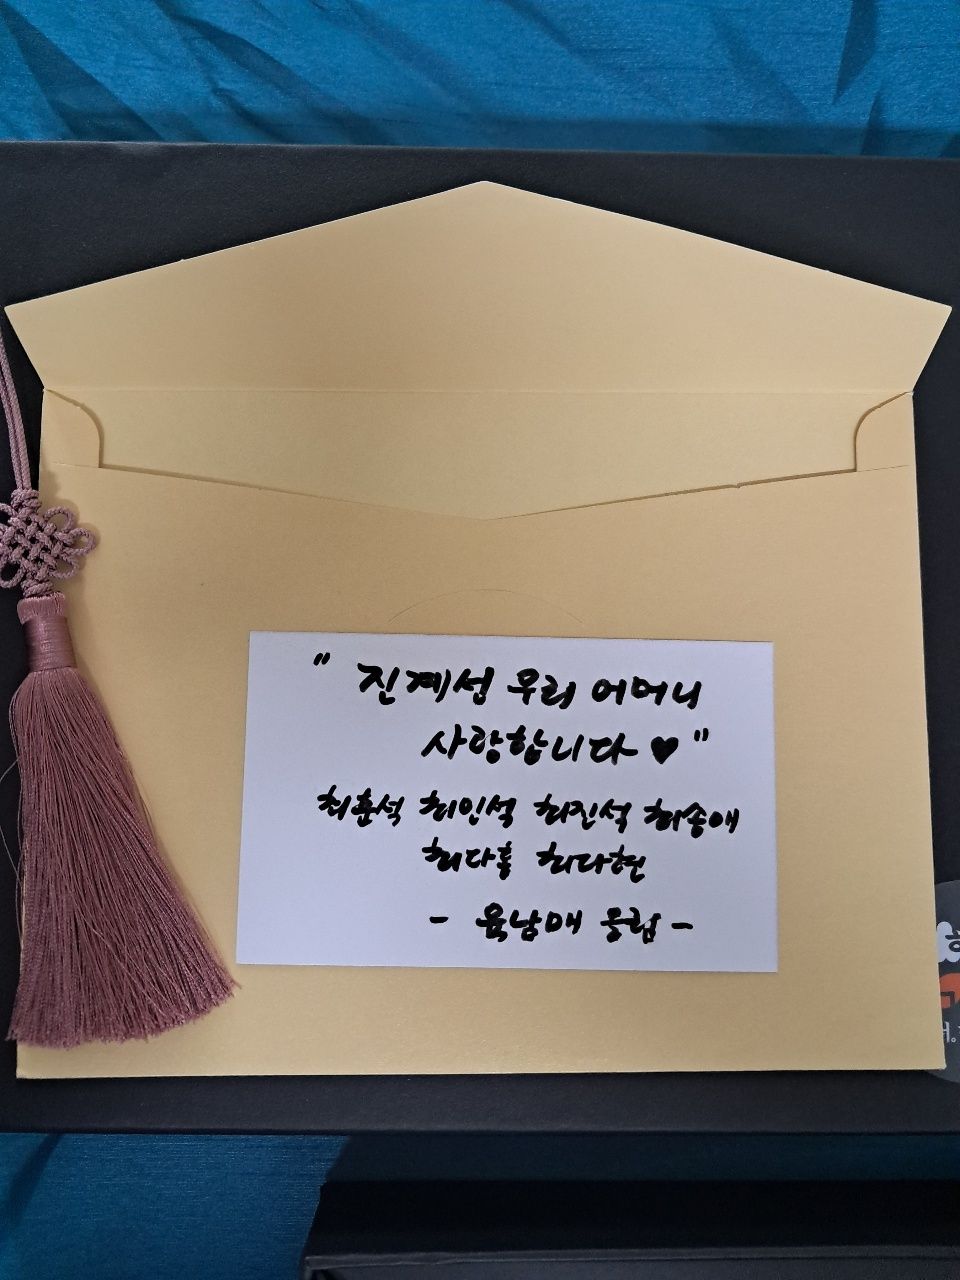 " 진계성 우리 어머니
사랑합니다 ♥ "
최훈석 최인석 최진석 최송애
최다흥 최다현
- 육남매 올림 -